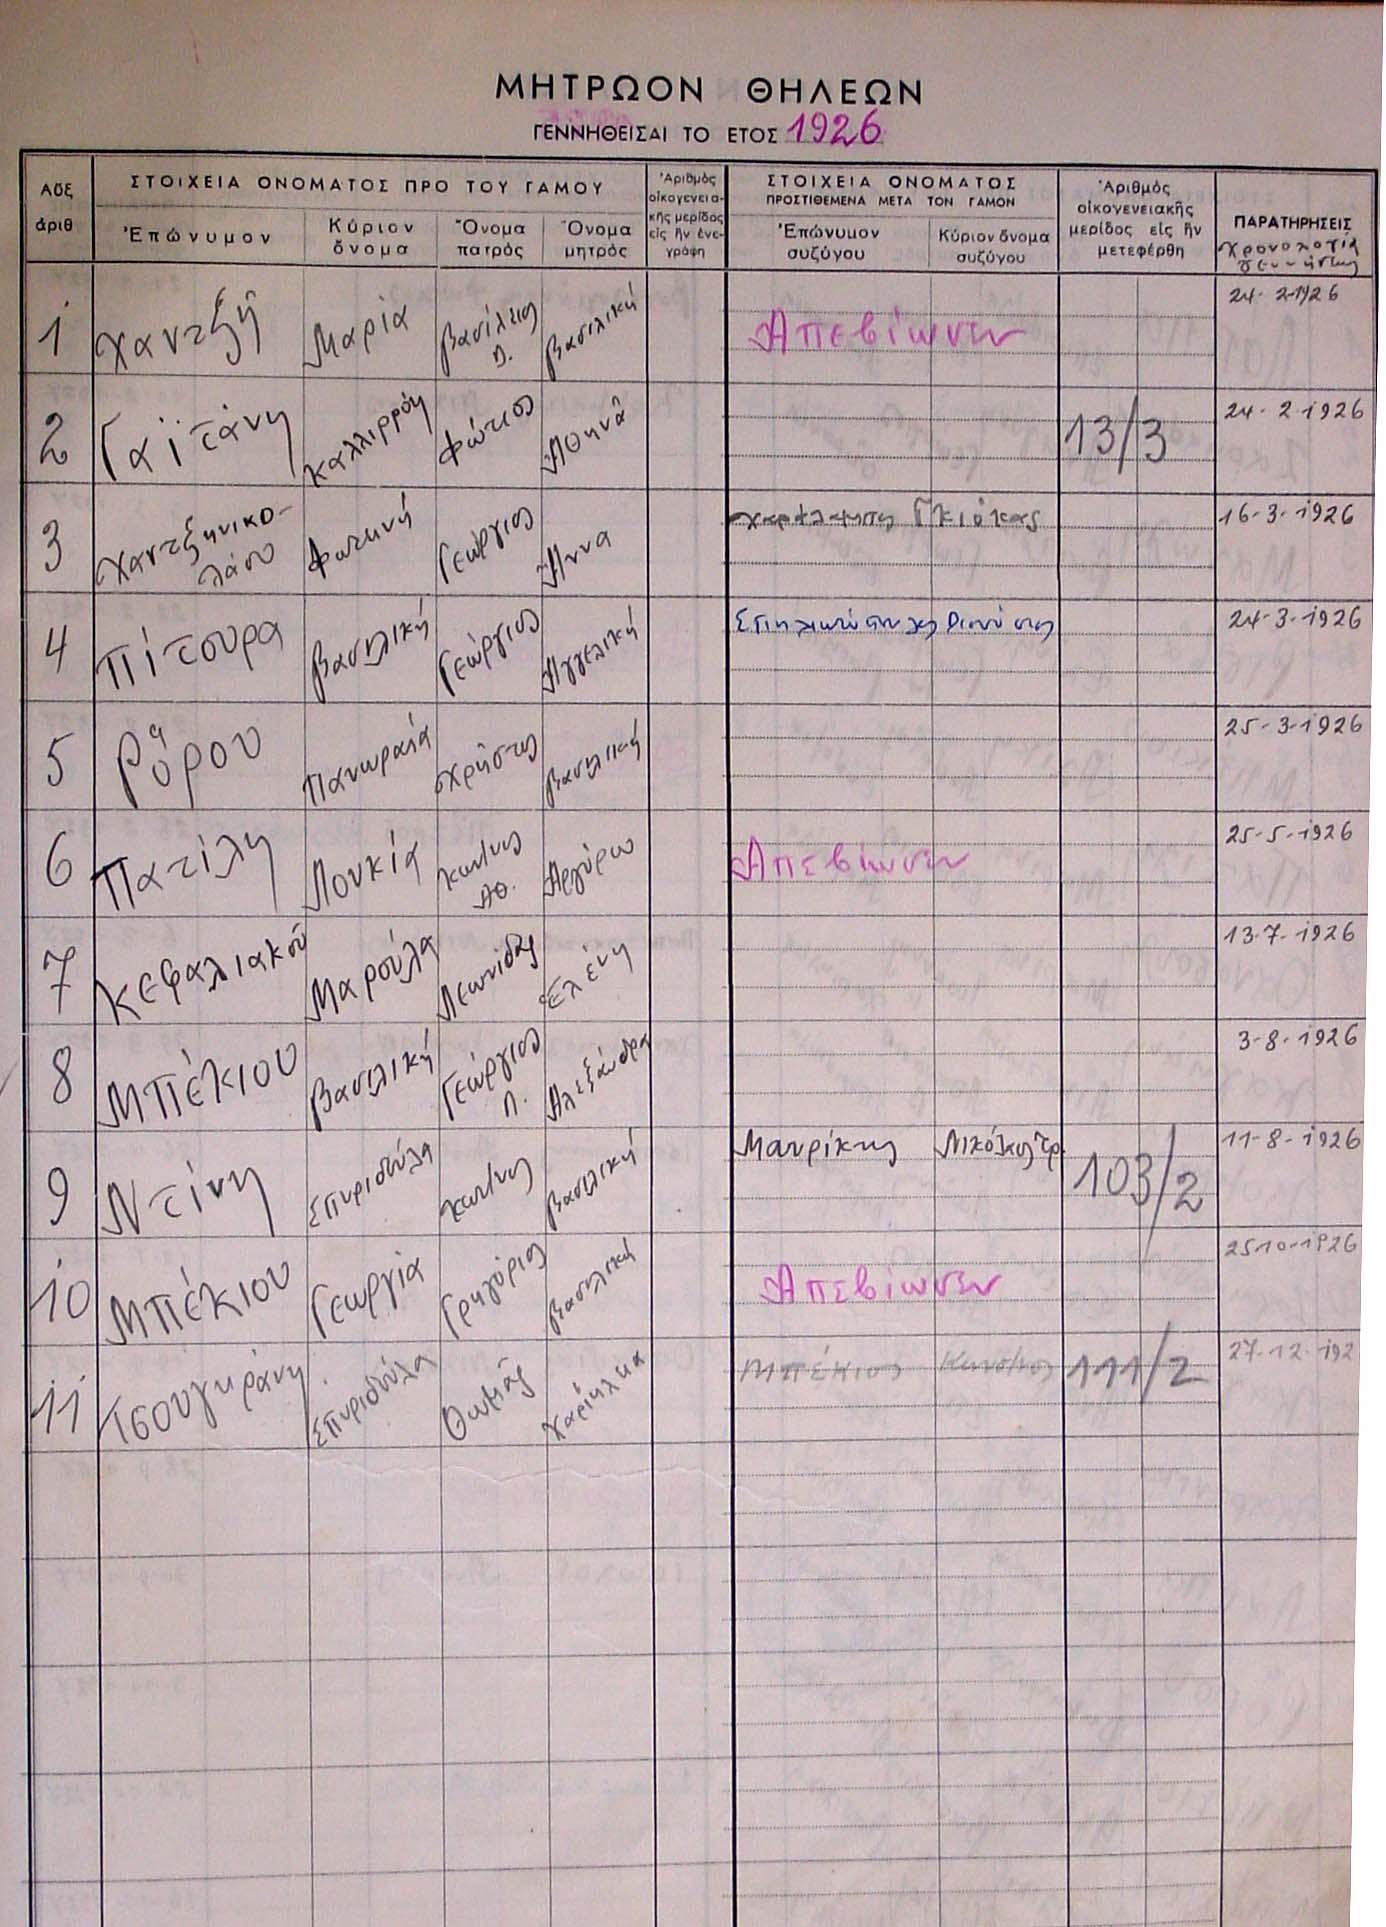 ΜΗΤΡΩΟΝ ΘΗΛΕΩΝ
ΓΕΝΝΗΘΕΙΣΑΙ ΤΟ ΕΤΟΣ 1926
Αὔξ ἀριθ
ΣΤΟΙΧΕΙΑ ΟΝΟΜΑΤΟΣ ΠΡΟ ΤΟΥ ΓΑΜΟΥ
Ἐπώνυμον
Κύριον ὄνομα
Ὄνομα πατρὸς
Ὄνομα μητρὸς
Ἀριθμὸς οἰκογενεια-κῆς μερίδος εἰς ἣν ἐνε-γράφη
ΣΤΟΙΧΕΙΑ ΟΝΟΜΑΤΟΣ
ΠΡΟΣΤΙΘΕΜΕΝΑ ΜΕΤΑ ΤΟΝ ΓΑΜΟΝ
Ἐπώνυμον συζύγου
Κύριον ὄνομα συζύγου
Ἀριθμὸς οἰκογενειακῆς μερίδος εἰς ἣν μετεφέρθη
ΠΑΡΑΤΗΡΗΣΕΙΣ
χρονολογία γεννήσεως
1 Χαντζῆ Μαρία Βασίλειος Π. Βασιλική Ἀπεβίωσεν 24-2-1926
2 Γαϊτάνη Καλλιρρόη Φώτιος Ἀθηνᾶ 13/3 24-2-1926
3 Χαντζηνικο-λάου Φωτεινή Γεώργιος Ἄννα Γκιόκας 16-3-1926
4 Πίτουρα Βασιλική Γεώργιος Ἀγγελική 24-3-1926
5 Ρόρου Πανωραία Χρῆστος Βασιλική 25-3-1926
6 Πατίλη Λουκία Κων/νος Ἀθ. Ἀργύρω Ἀπεβίωσεν 25-5-1926
7 Κεφαλιακοῦ Μαρούλα Λεωνίδας Ἑλένη 13-7-1926
8 Μπέκιου Βασιλική Γεώργιος Π. Ἀλεξάνδρα 3-8-1926
9 Ντίνη Σπυριδούλα Κων/νος Βασιλική Μαυρίκης 103/2 11-8-1926
10 Μπέκιου Γεωργία Γρηγόριος Βασιλική Ἀπεβίωσεν 25-10-1926
11 Τσουγκράνη Σπυριδούλα Θωμᾶς Χαρίκλεια Μπέκιος Κων/νος 111/2 27-12-192